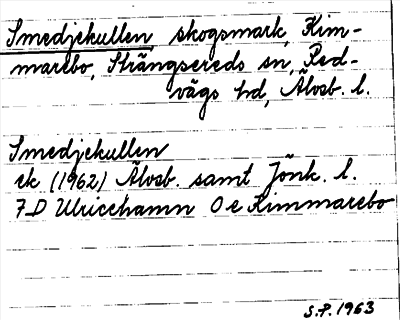 Smedjekullen skogsmark, Kim-
marebo, Strängsereds sn, Red-
vägs hd, Älvsb. l.
Smedjekullen
ek (1962) Älvsb. samt Jönk. l.
7D Ulricehamn O e Kimmarebo
S.P. 1963